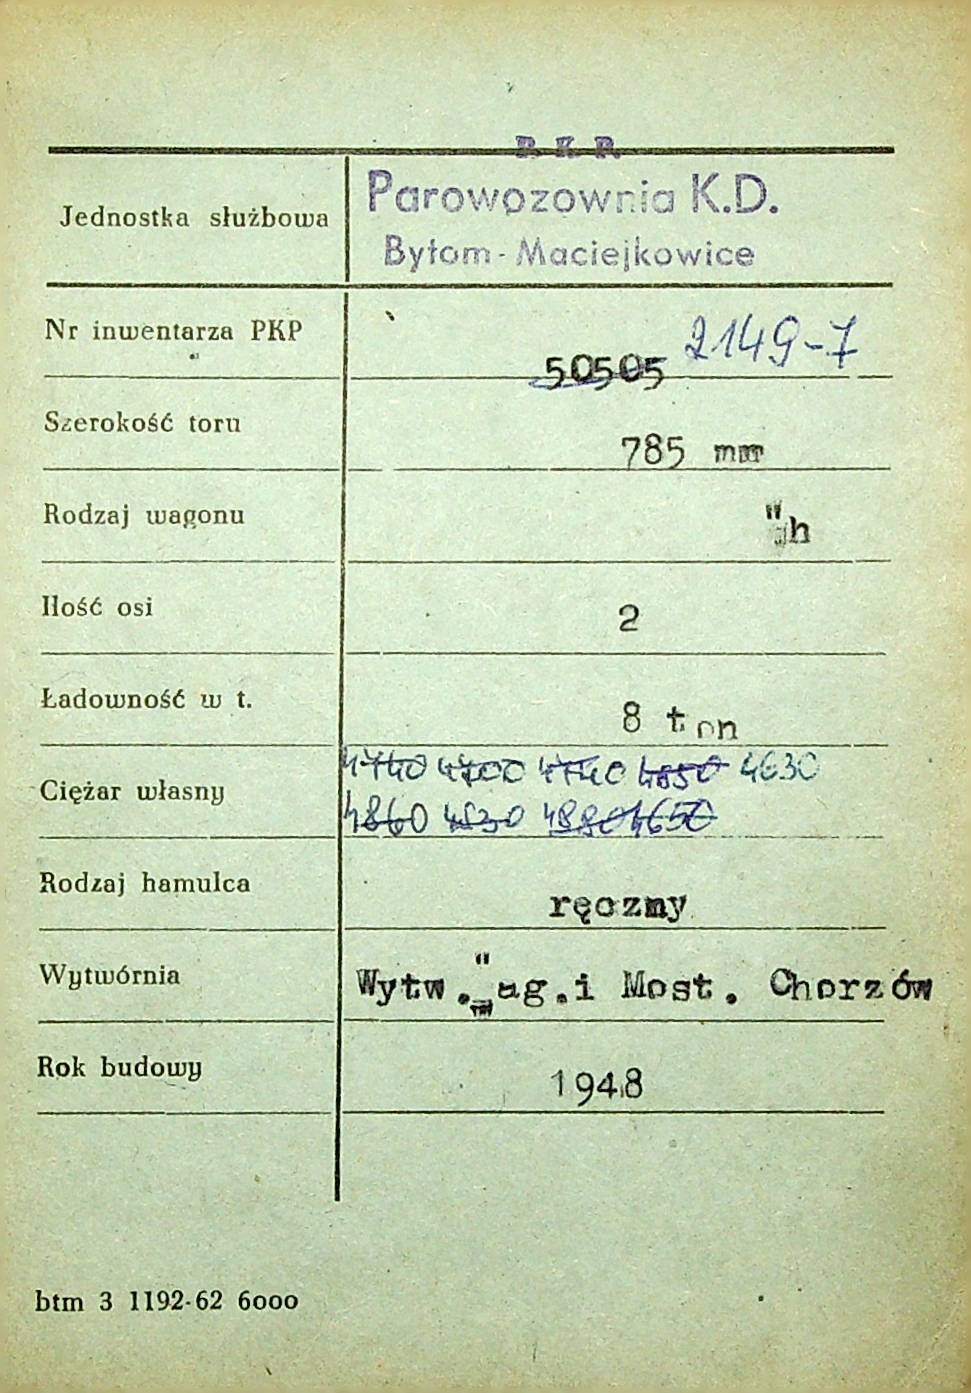 P. K. P.
Jednostka służbowa Parowozownia K.D.
Bytom - Maciejkowice
Nr inwentarza PKP 50505 2149-7
Szerokość toru 785 mm
Rodzaj wagonu
Ilość osi 2
Ładowność w t. 8 ton
4740 4700 4740 4850 4630
Ciężar własny
4860 4830 4880 4650
Rodzaj hamulca ręczny
Wytwórnia Wytw. Wag. i Most. Chorzów
Rok budowy 1948
btm 3 1192-62 6000